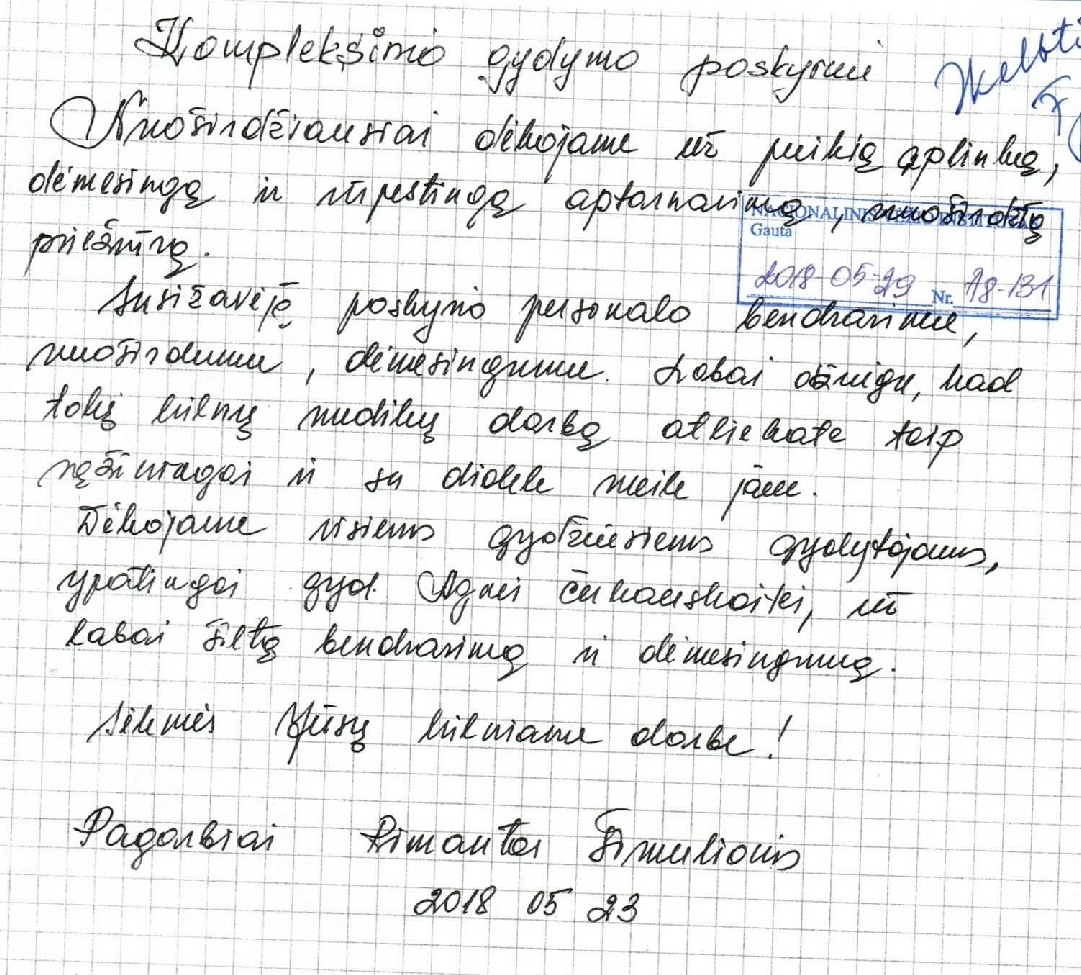 Kompleksinio gydymo poskyriui
Įkelbti
Nuoširdžiausiai dėkojame už puikią aplinką,
dėmesingą ir rūpestingą aptarnavimą, nuoširdžią
NACIONALINIS
Gauta
priežiūrą.
2018-05-29 Nr. A8-131
Susižavėję poskyrio personalo bendravimu,
nuoširdumu, dėmesingumu. Labai džiugu, kad
tokį kilnų medikų darbą atliekate taip
sąžiningai ir su didele meile jam.
Dėkojame visiems gydžiusiems gydytojams,
ypatingai gyd. Agnei Čekauskaitei, už
labai šiltą bendravimą ir dėmesingumą.
Sėkmės Jūsų kilniame darbe!
Pagarbiai Rimantas Simulionis
2018 05 23